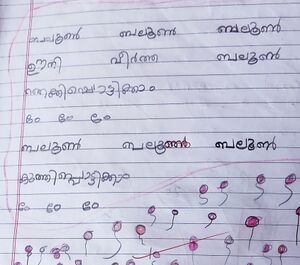 ബലൂൺ ബലൂൺ ബലൂൺ
ഊതി വീർത്ത ബലൂൺ
ഞെക്കിപ്പൊട്ടിക്കാം
ഠോ ഠോ ഠോ
ബലൂൺ ബലൂൺ ബലൂൺ
കുത്തിപ്പൊട്ടിക്കാം
ഠോ ഠോ ഠോ